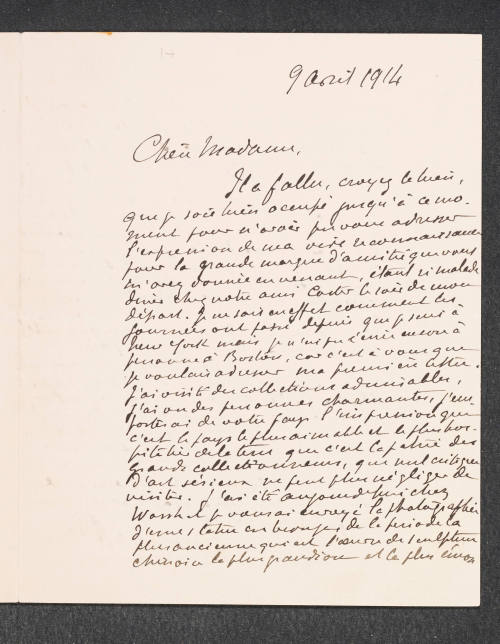 9 avril 1914
Chère Madame,
Il a fallu, croyez le bien,
que je sois bien occupé jusqu'à ce mo-
ment pour n'avoir pu vous adresser
l'expression de ma vive reconnaissance
pour la grande marque d'amitié que vous
m'avez donnée en venant, étant si malade
diner chez votre ami Carter le soir de mon
départ. Je ne sais en effet comment les
journées ont passé depuis que je suis à
New York mais je n'ai pu écrire encore à
personne à Boston, car c'est à vous que
je voulais adresser ma première lettre.
J'ai visité des collections admirables,
j'ai vu des personnes charmantes, j'em-
porterai de votre pays l'impression que
c'est le pays le plus aimable et le plus hos-
pitalier de la terre que c'est la patrie des
grands collectionneurs, que nul critique
d'art sérieux ne peut plus négliger de
visiter. J'ai été aujourd'hui chez
Worsh et je vous ai envoyé la photographie
d'une statue en bronze de la période la
plus ancienne qui est l'œuvre de sculpteur
chinois la plus grandiose et la plus émou